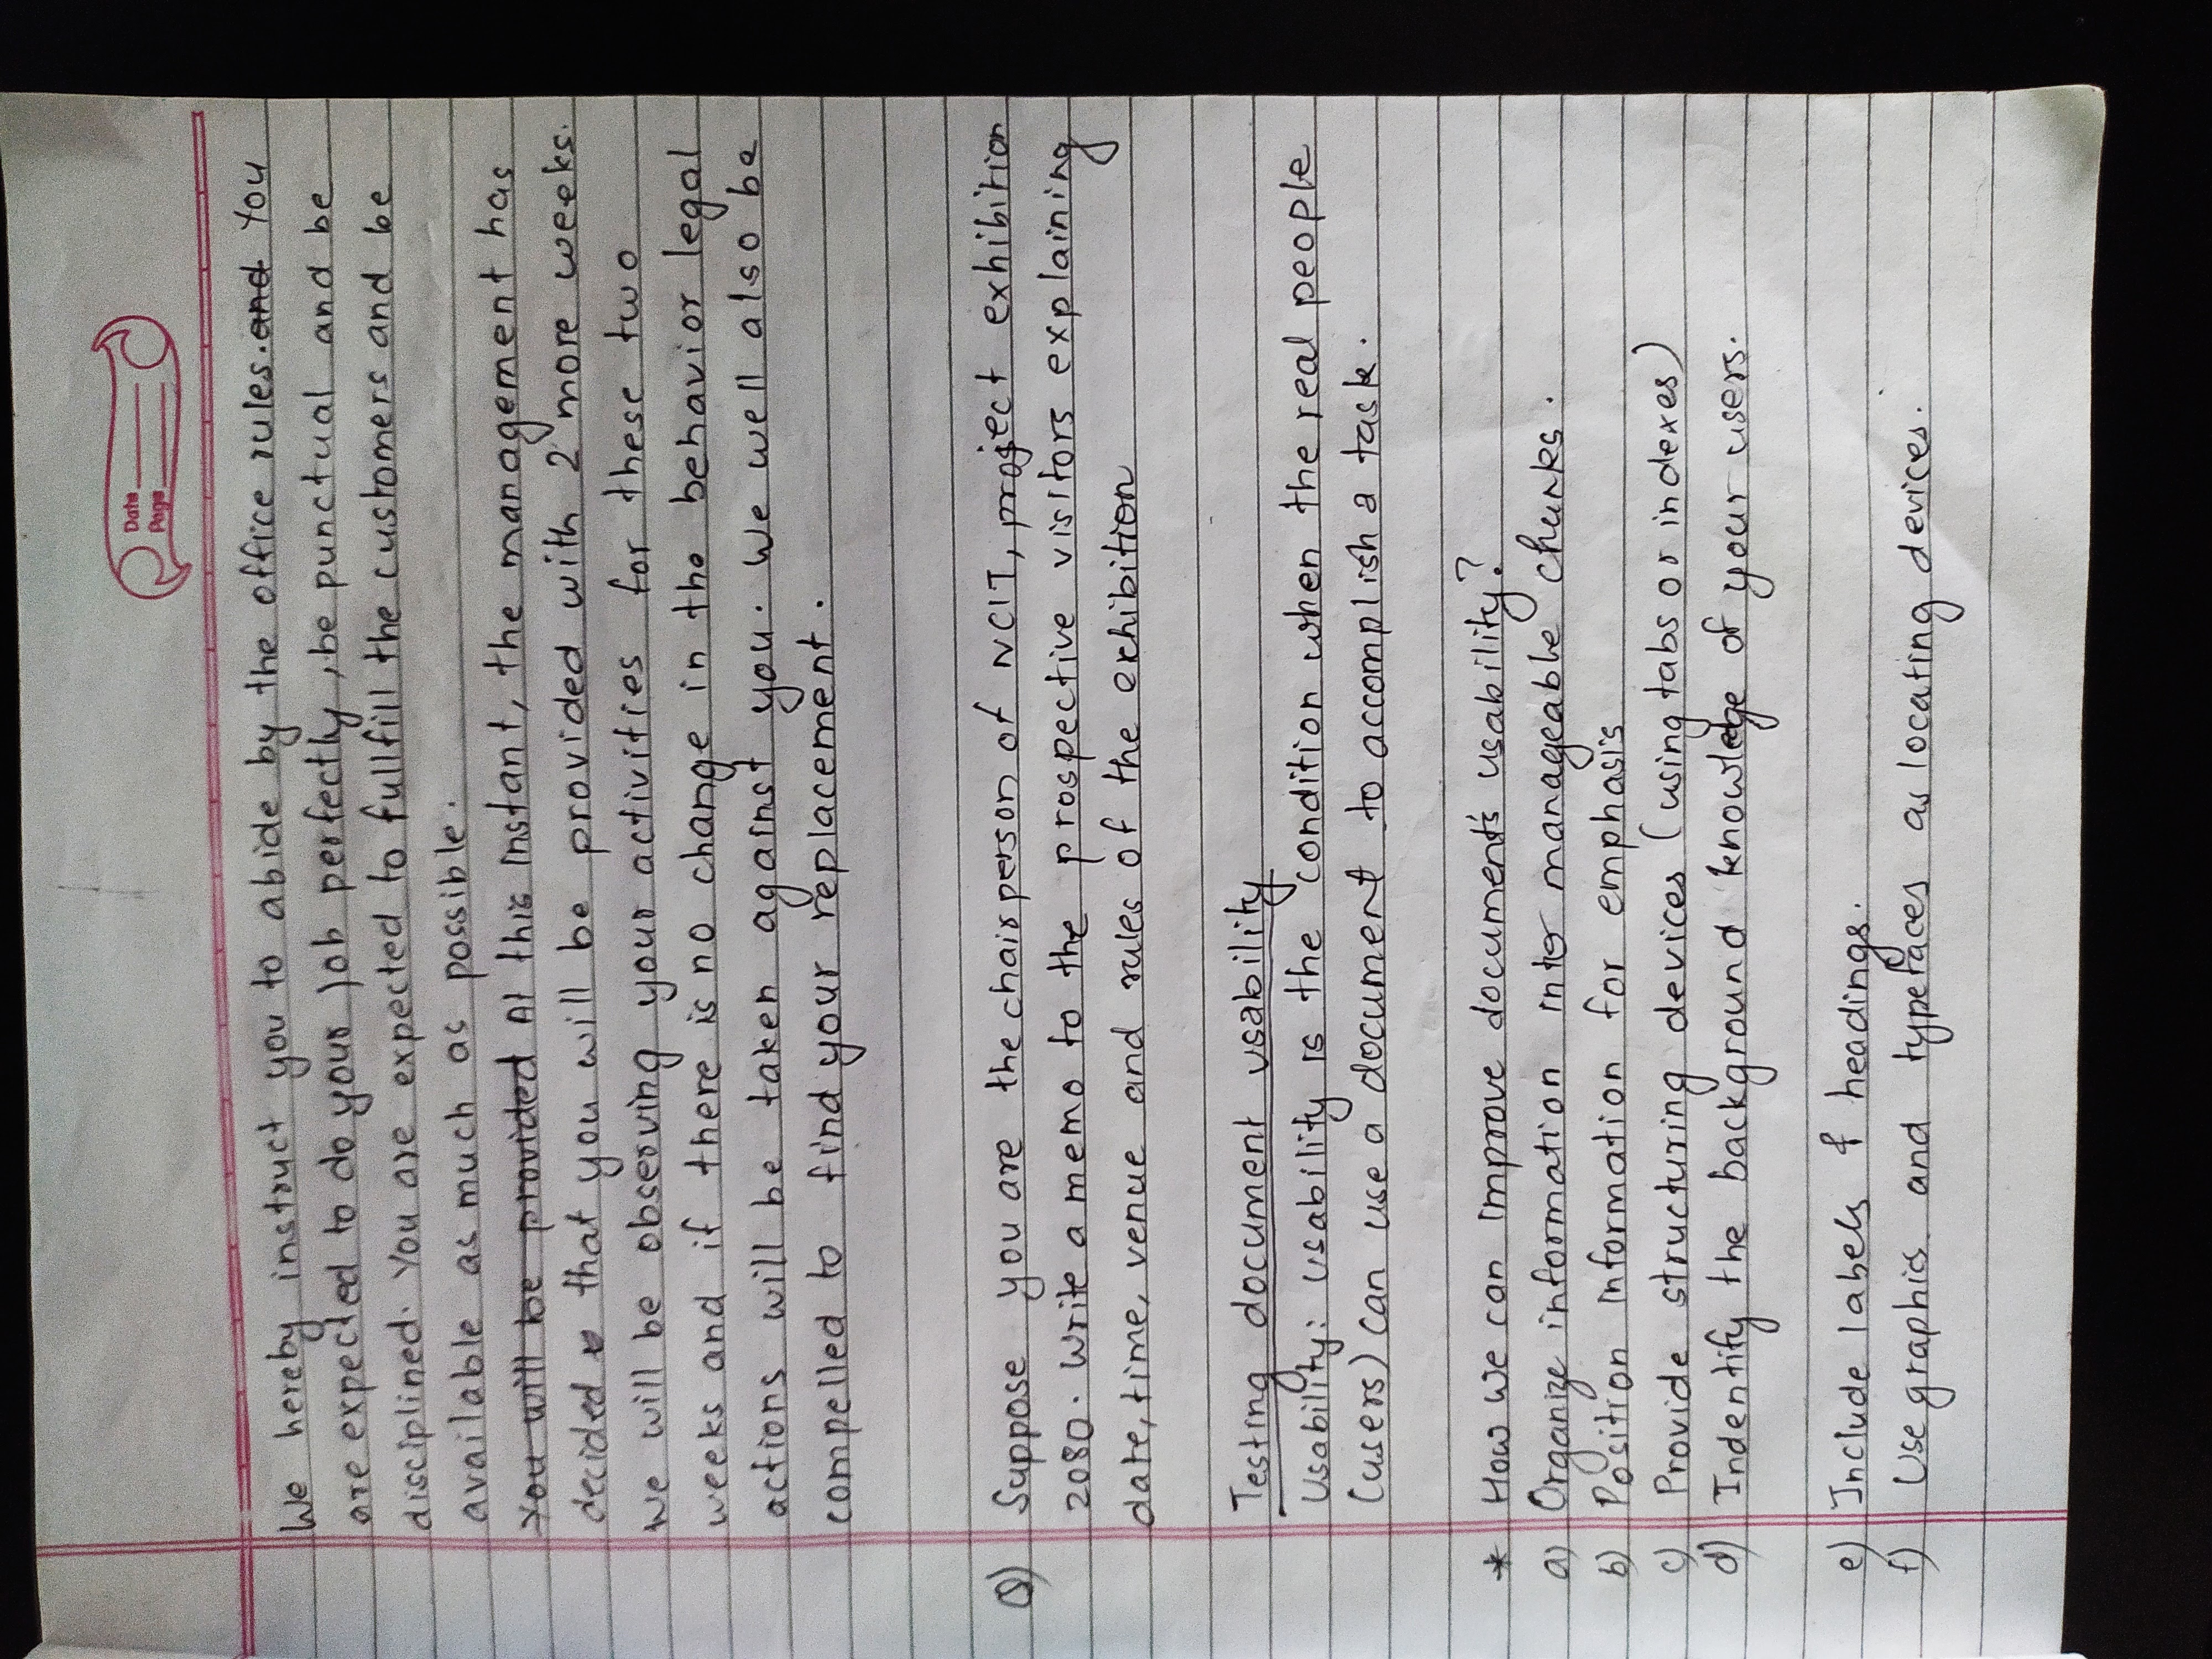 Date
Page
We hereby instruct you to abide by the office rules. and You
are expected to do your job perfectly, be punctual and be
disciplined. You are expected to fullfill the customers and be
available as much as possible.
You will be provided At this instant, the management has
decided that you will be provided with 2 more weeks.
We will be observing your activities for these two
weeks and if there is no change in the behavior legal
actions will be taken against you. We well also be
compelled to find your replacement.
Q) Suppose you are the chairperson of NCIT, project exhibition
2080. Write a memo to the prospective visitors explaining
date, time, venue and rules of the exhibition
Testing document usability
Usability: usability is the condition when the real people
(users) can use a document to accomplish a task.
* How we can improve document's usability?
a) Organize information into manageable chunks.
b) Position information for emphasis
c) Provide structuring devices (using tabs or indexes)
d) Indentify the background knowledge of your users.
e) Include labels & headings.
f) Use graphis and typefaces as locating devices.